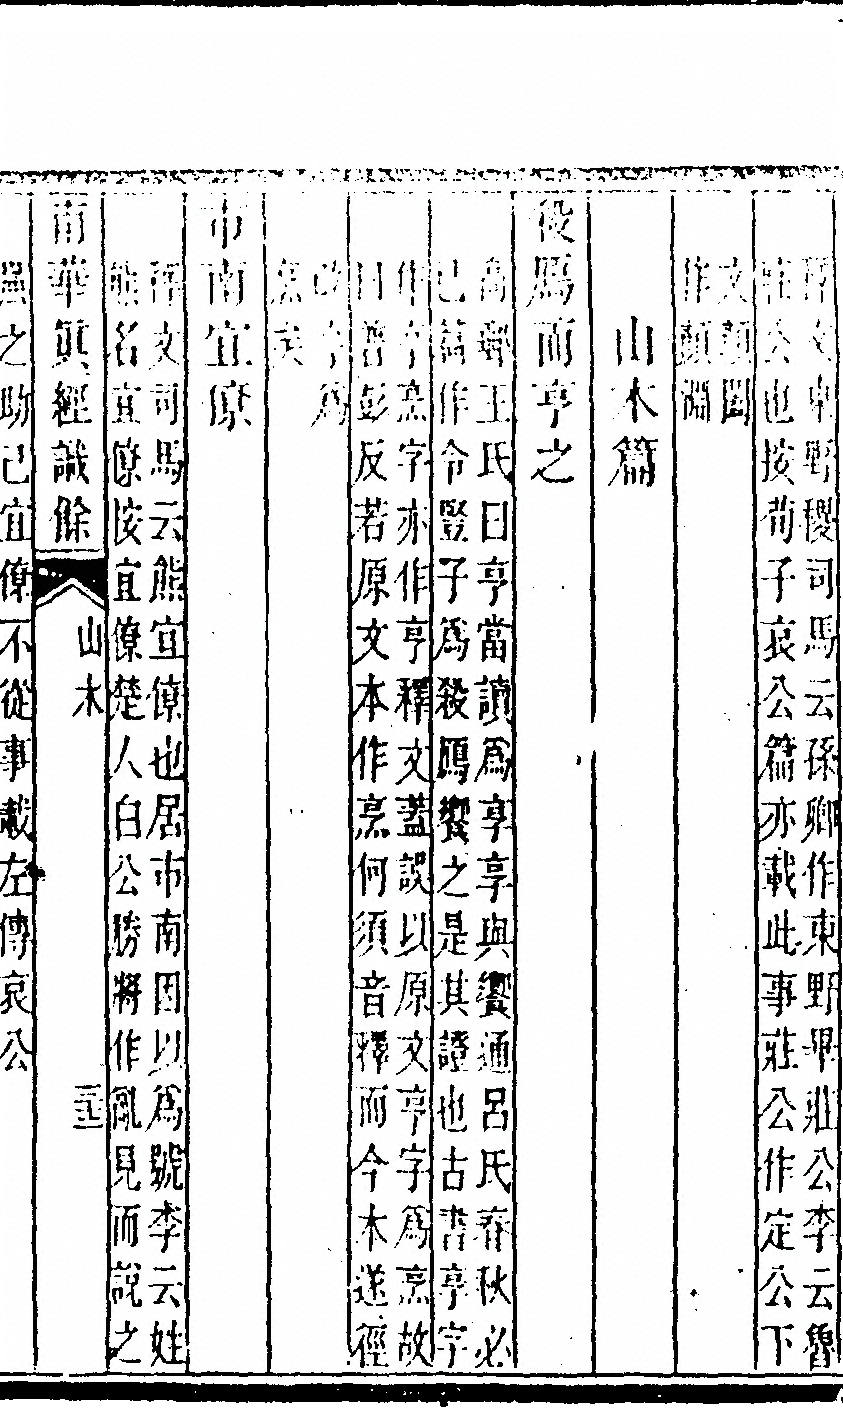 釋文東野稷司馬云孫卿作東野畢莊公李云魯
莊公也按荀子哀公篇亦載此事莊公作定公下
文顏闔
作顏淵
山木篇
殺鴈而亨之
高郵王氏曰亨當讀爲享享與饗通呂氏春秋必
己篇作令豎子爲殺鴈饗之是其證也古書享字
作亨烹字亦作亨釋文蓋誤以原文亨字爲烹故
曰普彭反若原文本作烹何須音釋而今本遂徑
改亨爲
烹矣
市南宜僚
釋文司馬云熊宜僚也居市南因以爲號李云姓
熊名宜僚按宜僚楚人白公勝將作亂見而說之
南華眞經識餘
山木
三十五
強之助己宜僚不從事載左傳哀公